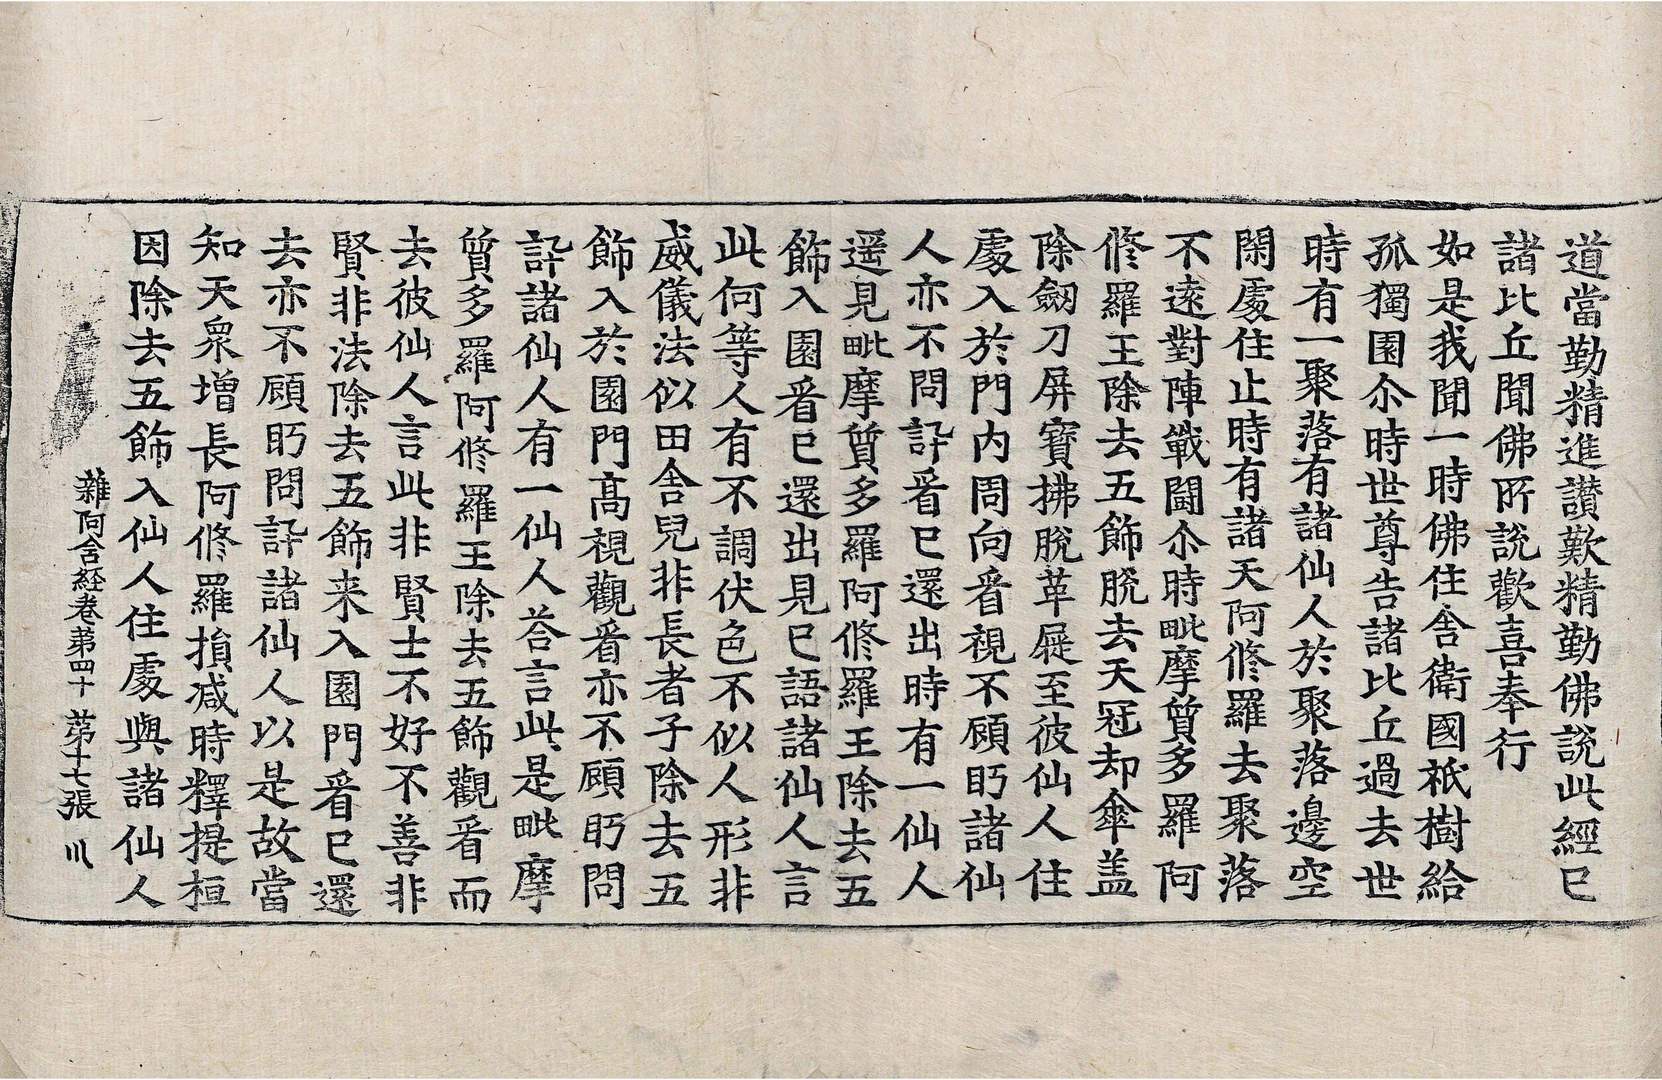 道當勤精進讃歎精勤佛說此經已
諸比丘聞佛所說歡喜奉行
如是我聞一時佛住舎衛國祇樹給
孤獨園尒時世尊告諸比丘過去世
時有一聚落有諸仙人於聚落邊空
閑處住止時有諸天阿修羅去聚落
不遠對陣戰鬪尒時毗摩質多羅阿
修羅王除去五飾脫去天冠却傘盖
除劒刀屏寶拂脫革屣至彼仙人住
處入於門內周向看視不顧眄諸仙
人亦不問訊看已還出時有一仙人
遥見毗摩質多羅阿修羅王除去五
飾入園看已還出見已語諸仙人言
此何等人有不調伏色不似人形非
威儀法似田舎兒非長者子除去五
飾入於園門髙視觀看亦不顧眄問
訊諸仙人有一仙人荅言此是毗摩
質多羅阿修羅王除去五飾觀看而
去彼仙人言此非賢士不好不善非
賢非法除去五飾来入園門看已還
去亦不顧眄問訊諸仙人以是故當
知天衆增長阿修羅損减時釋提桓
因除去五飾入仙人住處與諸仙人
雜阿含経卷苐四十 苐十七張 川